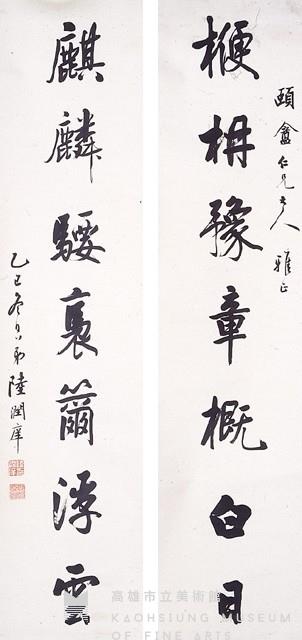 頤盦仁兄大人 雅正
楩枏豫章概白日
麒麟騕褭籋浮雲
乙巳冬日弟陸潤庠
高雄市立美術館
KAOHSIUNG MUSEUM
OF FINE ARTS